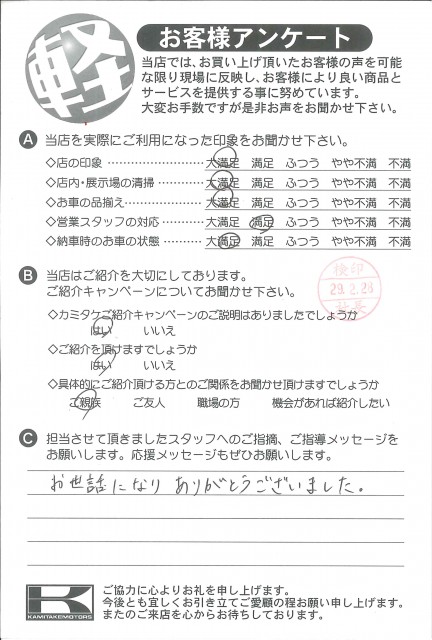 軽
お客様アンケート
当店では、お買い上げ頂いたお客様の声を可能
な限り現場に反映し、お客様により良い商品と
サービスを提供する事に努めています。
大変お手数ですが是非お声をお聞かせ下さい。
A 当店を実際にご利用になった印象をお聞かせ下さい。
◇店の印象 …………………… 大満足 満足 ふつう やや不満 不満
◇店内・展示場の清掃………… 大満足 満足 ふつう やや不満 不満
◇お車の品揃え………………… 大満足 満足 ふつう やや不満 不満
◇営業スタッフの対応………… 大満足 満足 ふつう やや不満 不満
◇納車時のお車の状態………… 大満足 満足 ふつう やや不満 不満
B 当店はご紹介を大切にしております。
ご紹介キャンペーンについてお聞かせ下さい。
検印
29.2.28
◇カミタケご紹介キャンペーンのご説明はありましたでしょうか
はい いいえ
◇ご紹介を頂けますでしょうか
はい いいえ
◇具体的にご紹介頂ける方とのご関係をお聞かせ頂けますでしょうか
ご親族 ご友人 職場の方 機会があれば紹介したい
C 担当させて頂きましたスタッフへのご指摘、ご指導メッセージを
お願いします。応援メッセージもぜひお願いします。
お世話になり ありがとうございました。
K
KAMITAKEMOTORS
ご協力に心よりお礼を申し上げます。
今後とも宜しくお引き立てご愛顧の程お願い申し上げます。
またのご来店を心からお待ちしております。